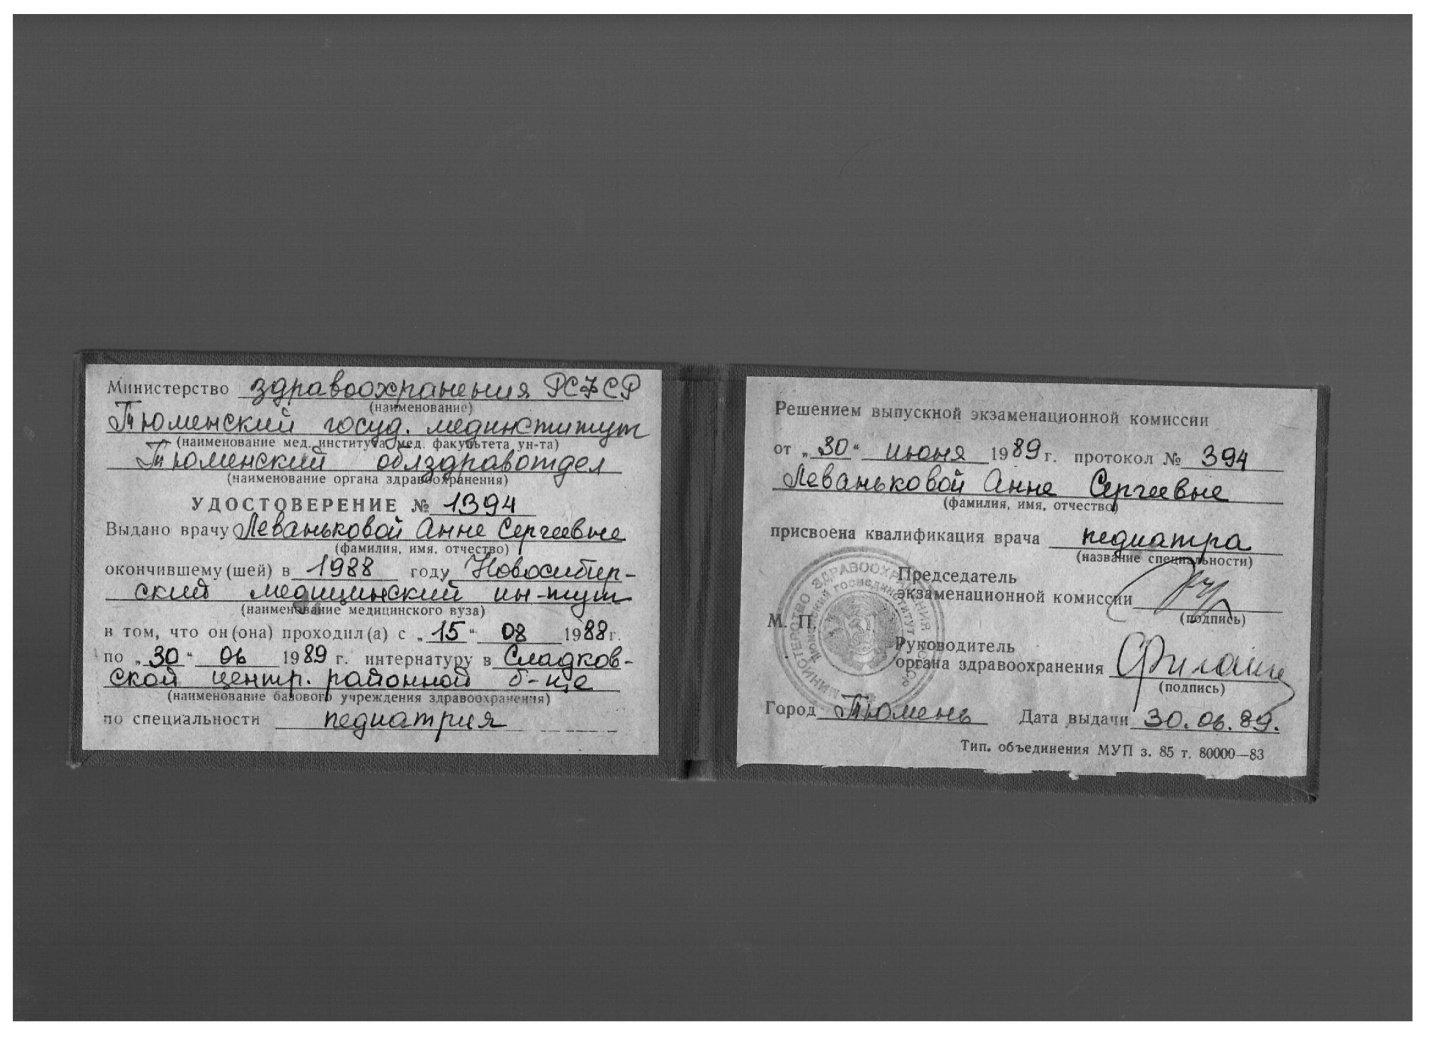 Министерство здравоохранения РСФСР
(наименование)
Тюменский госуд. мединститут
(наименование мед. института, мед. факультета ун-та)
Тюменский облздравотдел
(наименование органа здравоохранения)
УДОСТОВЕРЕНИЕ № 1394
Выдано врачу Леваньковой Анне Сергеевне
(фамилия, имя, отчество)
окончившему (шей) в 1988 году Новосибир-
ский медицинский ин-тут
(наименование медицинского вуза)
в том, что он (она) проходил(а) с „15“ 08 1988 г.
по „30“ 06 1989 г. интернатуру в Сладков-
ской центр. районной б-це
(наименование базового учреждения здравоохранения)
по специальности педиатрия
Решением выпускной экзаменационной комиссии
от „30“ июня 1989 г. протокол № 394
Леваньковой Анне Сергеевне
(фамилия, имя, отчество)
присвоена квалификация врача педиатра
(название специальности)
Председатель
экзаменационной комиссии
(подпись)
М. П.
Руководитель
органа здравоохранения
(подпись)
Город Тюмень Дата выдачи 30.06.89.
Тип. объединения МУП з. 85 т. 80000—83
МИНИСТЕРСТВО ЗДРАВООХРАНЕНИЯ РСФСР
Тюменский госмединститут